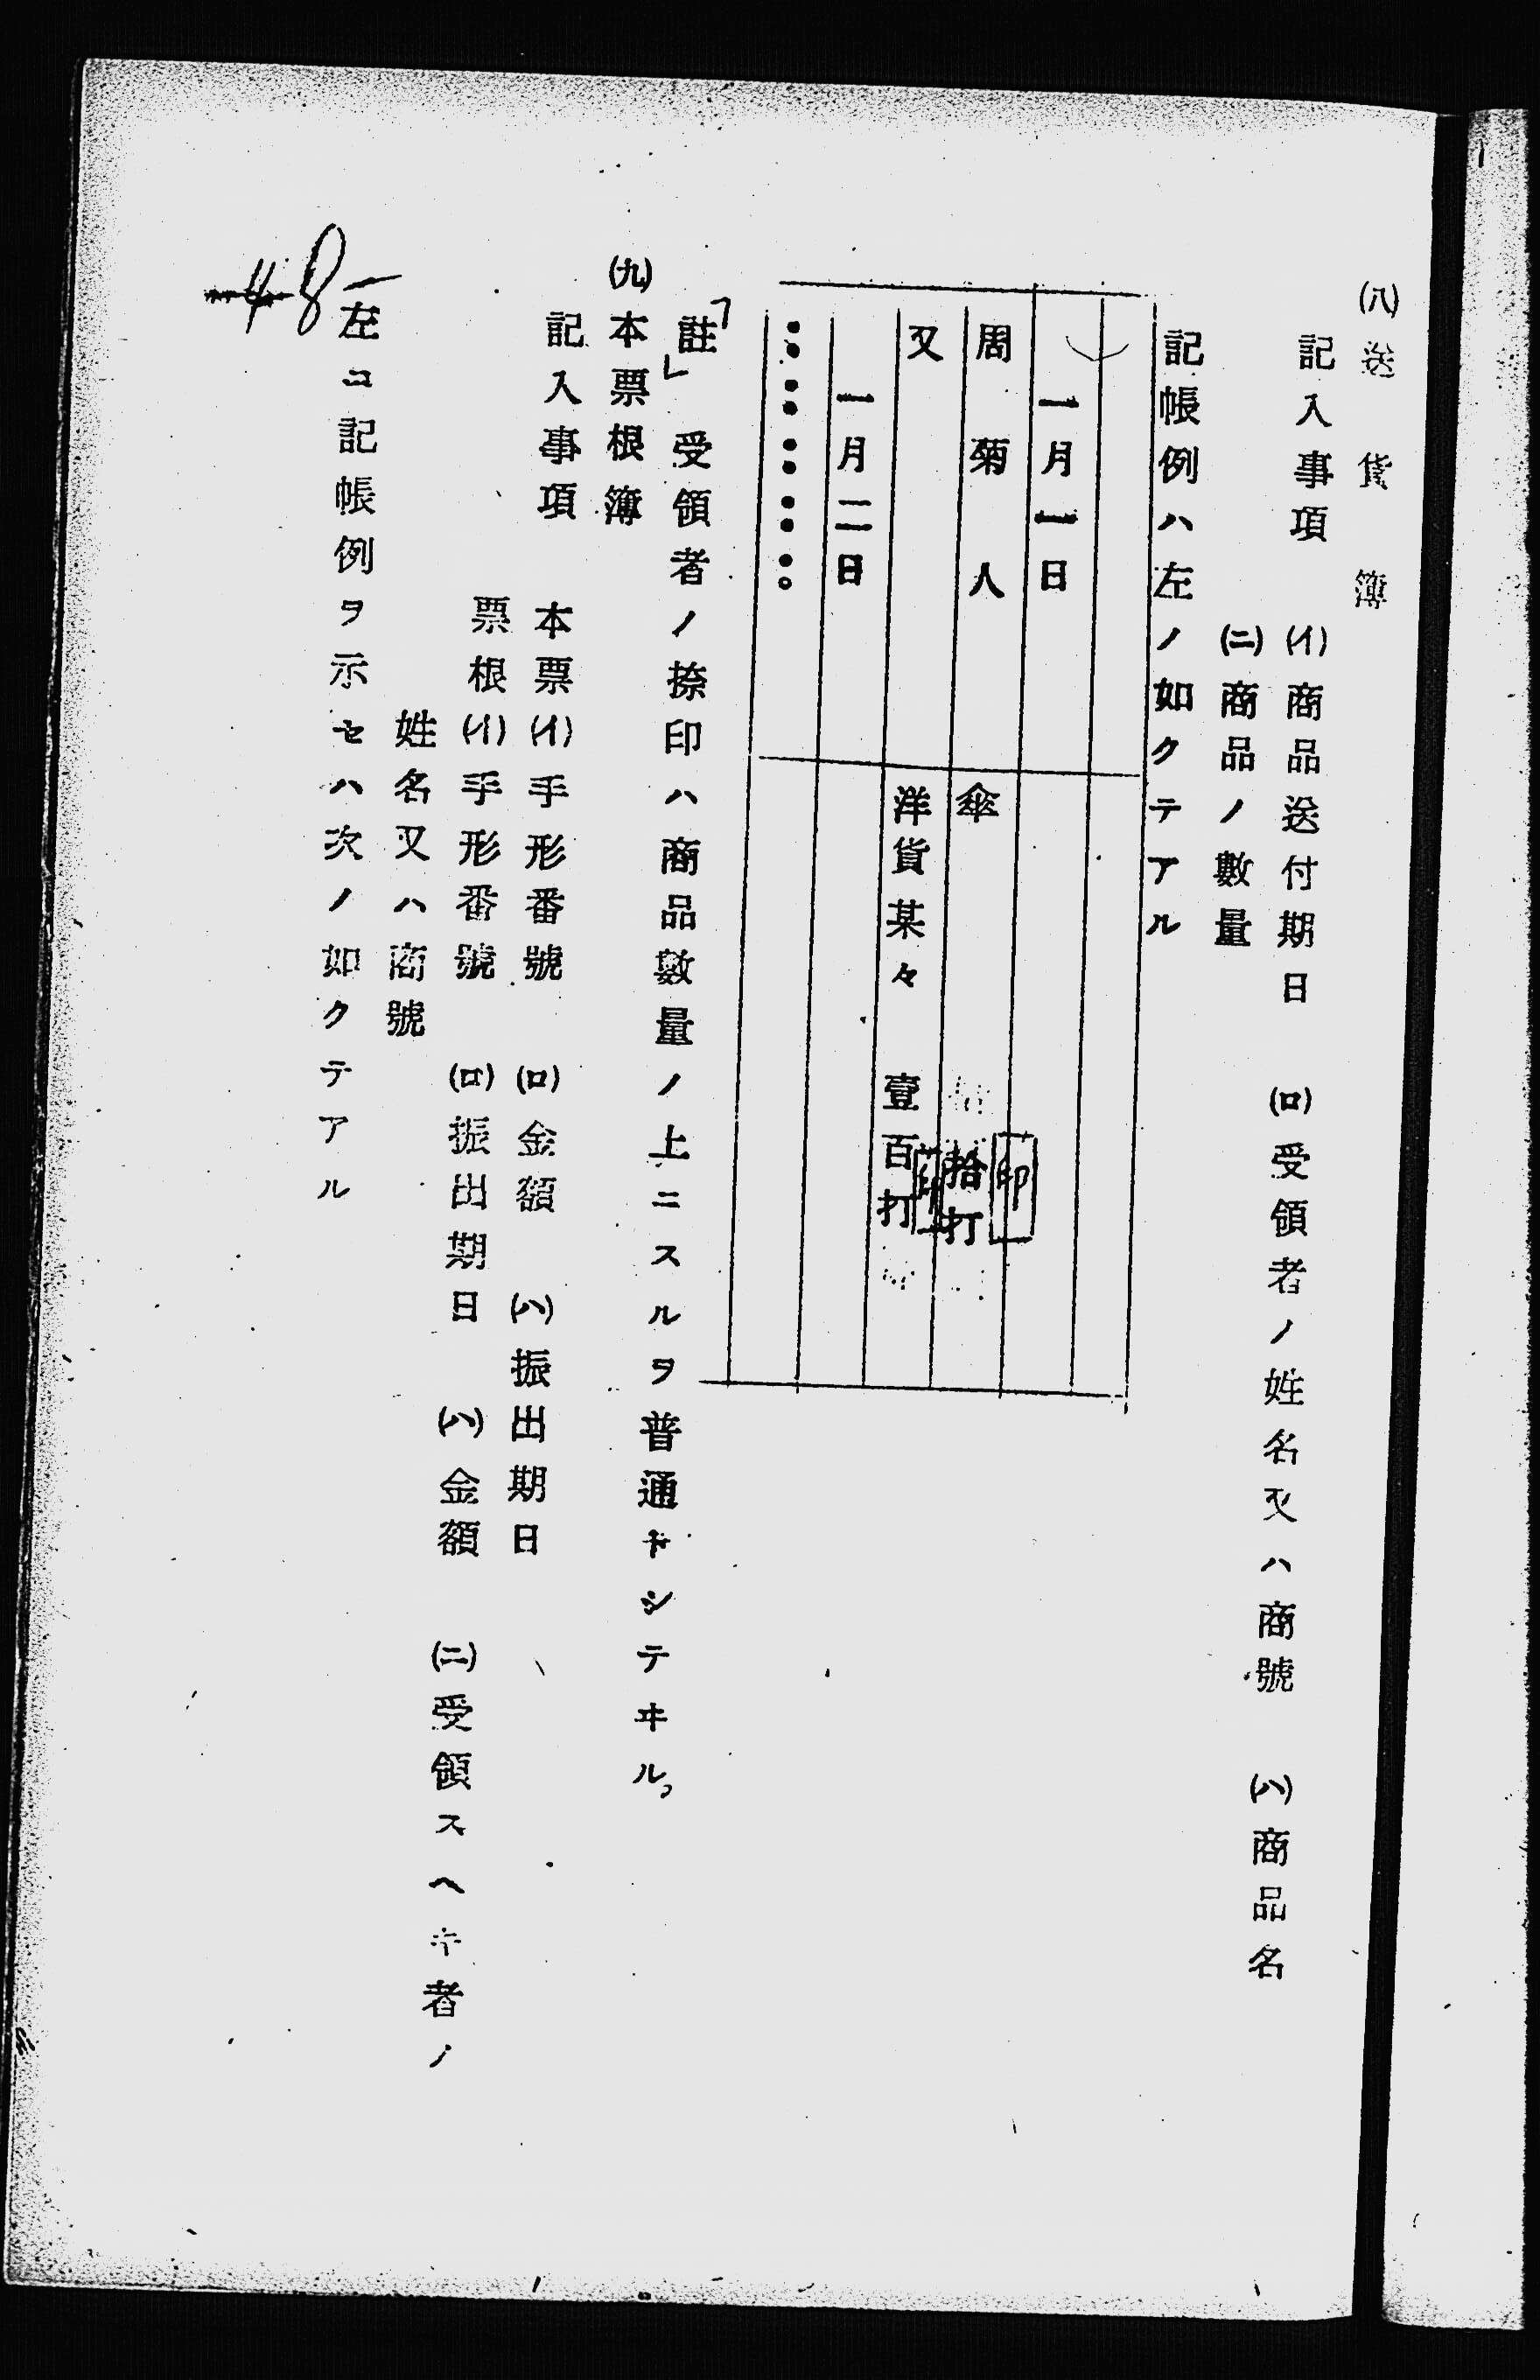 (八)送貨簿
記入事項　(イ)商品送付期日　(ロ)受領者ノ姓名又ハ商號　(ハ)商品名
(ニ)商品ノ數量
記帳例ハ左ノ如クテアル
一月一日
周菊人　傘　拾打　印
又　洋貨某々　壹百打　印
一月二日
………………。
「註」受領者ノ捺印ハ商品數量ノ上ニスルヲ普通トシテヰル、
(九)本票根簿
記入事項　本票(イ)手形番號　(ロ)金額　(ハ)振出期日
票根(イ)手形番號　(ロ)振出期日　(ハ)金額　(ニ)受領スヘキ者ノ
姓名又ハ商號
左コ記帳例ヲ示セハ次ノ如クテアル
48